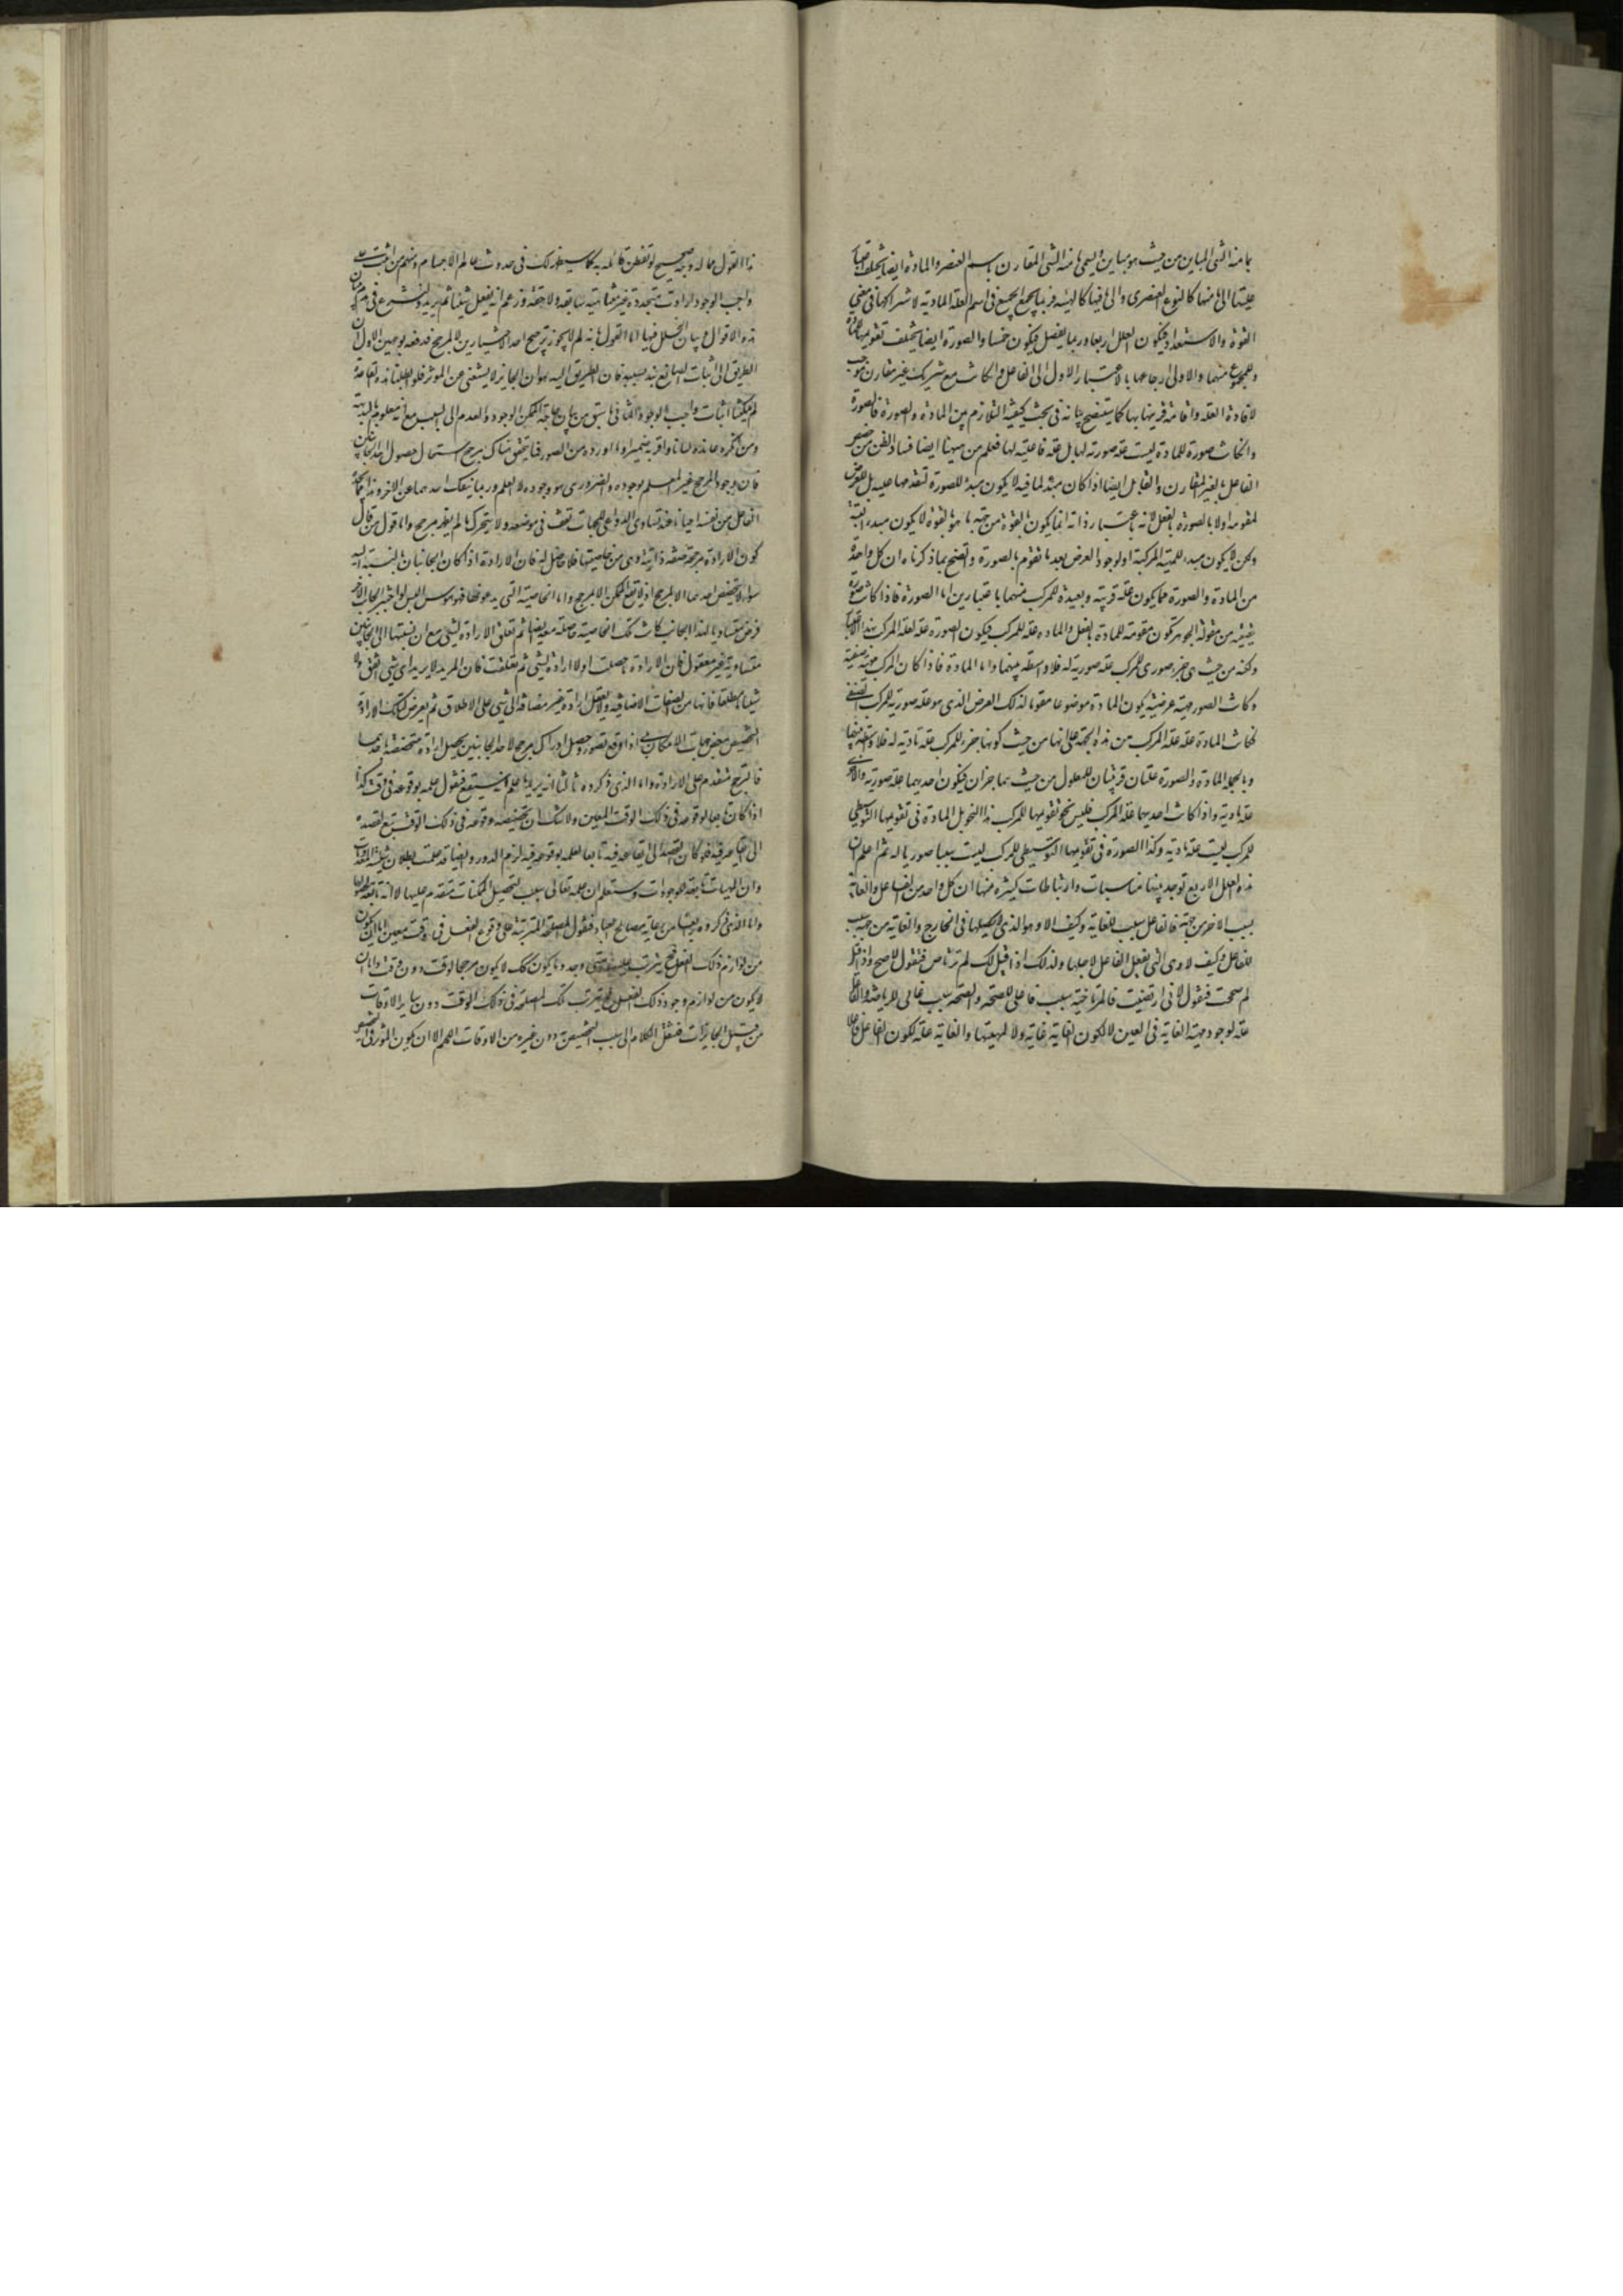 ما منه الشی المباین من حیث هو مباین والیمی ما منه الشی المقارن باسم العنصر والمادة ایضا یختلف
علیتها الی ما منها کالنوع العنصری والی ما فیها کالهیئة وربما یجمع الجمیع فی اسم العلة المادیة لاشتراکها فی معنی
القوة والاستعداد فیکون العلل اربعا وربما یفصل فیکون خمسا والصورة ایضا یختلف تقویمها
وللمجموع منهما والاولی ارجاعها بالاعتبار الاول الی الفاعل وان کانت مع شریک غیر مقارن موجب
لافادة العلة واقامة قرینها بها کما سیتضح بیانه فی بحث کیفیة التلازم بین المادة والصورة فالصورة
وان کانت صورة للمادة لیست علة صوریة لها بل علة فاعلیة لها فعلم من هیهنا ایضا فساد الظن من حصر
الفاعل بالغیر المقارن والقابل ایضا اذا کان مبدءا لما فیه لا یکون مبدءا للصورة لتقدمها علیه بل للعرض
لتقومه اولا بالصورة بالفعل لانه باعتبار ذاته انما یکون بالقوة من جهة ما هو بالقوة لا یکون مبدءا البتة
ولکن یکون مبدءا للمهیة المرکبة او لوجود العرض بعد ما تقوم بالصورة واتضح بما ذکرناه ان کل واحدة
من المادة والصورة مما یکون علة قریبة وبعیدة للمرکب منهما باعتبارین اما الصورة فاذا کانت صورة
حقیقیة من مقولة الجوهر تکون مقومة للمادة بالفعل والمادة علة للمرکب فیکون الصورة علة لعلة المرکب بهذا الاعتبار
ولکنه من حیث هی جزء صوری للمرکب علة صوریة له فلا واسطة بینهما واما المادة فاذا کان المرکب مهیة صنفیة
وکانت الصورة هیئة عرضیة یکون المادة موضوعا مقوما لذلک العرض الذی هو علة صوریة للمرکب الصنفی
کانت المادة علة علة المرکب من هذه الجهة علی انها من حیث کونها جزء للمرکب علة مادیة له فلا واسطة بینهما
وبالجملة المادة والصورة علتان قریبتان للمعلول من حیث هما جزءان فیکون احدیهما علة صوریة والاخری
علة مادیة واذا کانت احدیهما علة علة المرکب فلیس نحو تقویمها للمرکب هذا النحو بل المادة فی تقویمها التوسطی
للمرکب لیست علة مادیة وکذا الصورة فی تقویمها التوسیطی للمرکب لیست سببا صوریا له ثم اعلم ان
هذه العلل الاربع توجد بینها مناسبات وارتباطات کثیرة منها ان کل واحد من الفاعل والغایة
سبب الاخر من جهة فالفاعل سبب للغایة وکیف لا وهو الذی یحصلها فی الخارج والغایة من جهة سبب
للفاعل وکیف لا وهی التی یفعل الفاعل لاجلها ولذلک اذا قیل لک لم ترتاض فتقول لاصح واذا قیل
لم صححت فتقول لانی ارتضت فالریاضة سبب فاعلی للصحة والصحة سبب غائی للریاضة والفاعل
علة لوجود مهیة الغایة فی العین لا لکون الغایة غایة ولا لمهیتها والغایة علة لکون الفاعل فاعلا
هذا القول مما له وجه صحیح لو تفطن قائله به کما سیظهر لک فی حدوث عالم الاجسام ومنهم من اثبت علی
واجب الوجود ارادات متجددة غیر متناهیة سابقة ولاحقة وزعم انه یفعل شیئا ثم یرید ولنشرع فی
هذه الاقوال وبیان الخلل فیها اما القول بانه لم لا یجوز ترجیح احد المتساویین لا لمرجح فدفعه بوجهین الاول ان
الطریق الی اثبات الصانع ینسد فان الطریق الیه هو ان الجایز لا یستغنی عن المؤثر فلو ابطلنا هذه القاعدة
لم یمکننا اثبات واجب الوجود الثانی ما سبق من بیان حاجة الممکن فی الوجود والعدم الی السبب مع انه معلوم بالبدیهة
ومن انکره عانده لسانا واقر به ضمیرا وما اورده من الصور فما یتحقق هناک مرجح استحال حصول احد الجانبین
فان وجود المرجح غیر العلم بوجوده والضروری هو وجوده لا العلم وربما ینفک احدهما عن الاخر
الفاعل من نفسه احیانا عند تساوی الدواعی الی الجهات تقف فی موضعه ولا یتحرک ما لم یظهر مرجح واما قول من قال
کون الارادة مرجحة صفة ذاتیة وهی من خاصیتها فلا حاصل له فان الارادة اذا کان الجانبان بالنسبة الیه
سواء لا یتخصص احدهما الا بمرجح اذ لا یقع الممکن الا بمرجح واما الخاصیة التی یدعونها فهو هوس الیس لو اختیر الجانب الاخر
فرض مساویا لهذا الجانب کانت تلک الخاصیة حاصلة معه ایضا ثم تعلق الارادة بشی مع ان نسبتها الی الجانبین
متساویة غیر معقول فان الارادة ما حصلت اولا ارادة لشی ثم تعلقت فان المرید لا یرید ای شی اتفق ولا
شیئا مطلقا فانها من الصفات الاضافیة ولا یعقل ارادة غیر مضافة الی شی علی الاطلاق ثم یعرض لتلک الارادة
التخصیص ببعض جهات الامکان نعم اذا وقع تصور وحصل ادراک یرجح لاحد الجانبین یحصل ارادة متخصصة باحدهما
فالترجیح متقدم علی الارادة واما الذی ذکروه ثالثا انه یرید ما علم انه سیقع فنقول علمه بوقوعه فی وقت کذا
اذا کان تابعا لوقوعه فی ذلک الوقت المعین ولا شک ان تخصیصه وقوعه فی ذلک الوقت یتبع لقصده
الی ایقاعه فیه فلو کان القصد الی ایقاعه فیه تابعا لعلمه بوقوعه فیه لزم الدور وایضا قد علمت بطلان شیئیة المعدومات
وان المهیات تابعة للوجودات وستعلم ان علمه تعالی سبب لتحصیل الممکنات متقدم علیها لا انه تابع لحصولها
واما الذی ذکروه رابعا من رعایة مصالح العباد فنقول المصلحة المترتبة علی وقوع الفعل فی وقت معین اما ان یکون
من لوازم ذلک الفعل یترتب علیه متی وجد وما یکون کک لا یکون مرجحا لوقت دون وقت واما ان
لا یکون من لوازم وجود ذلک الفعل فترتب تلک المصلحة فی ذلک الوقت دون سایر الاوقات
من قبیل الجایزات فننقل الکلام الی سبب التخصیص دون غیره من الاوقات اللهم الا ان یکون المؤثر فی